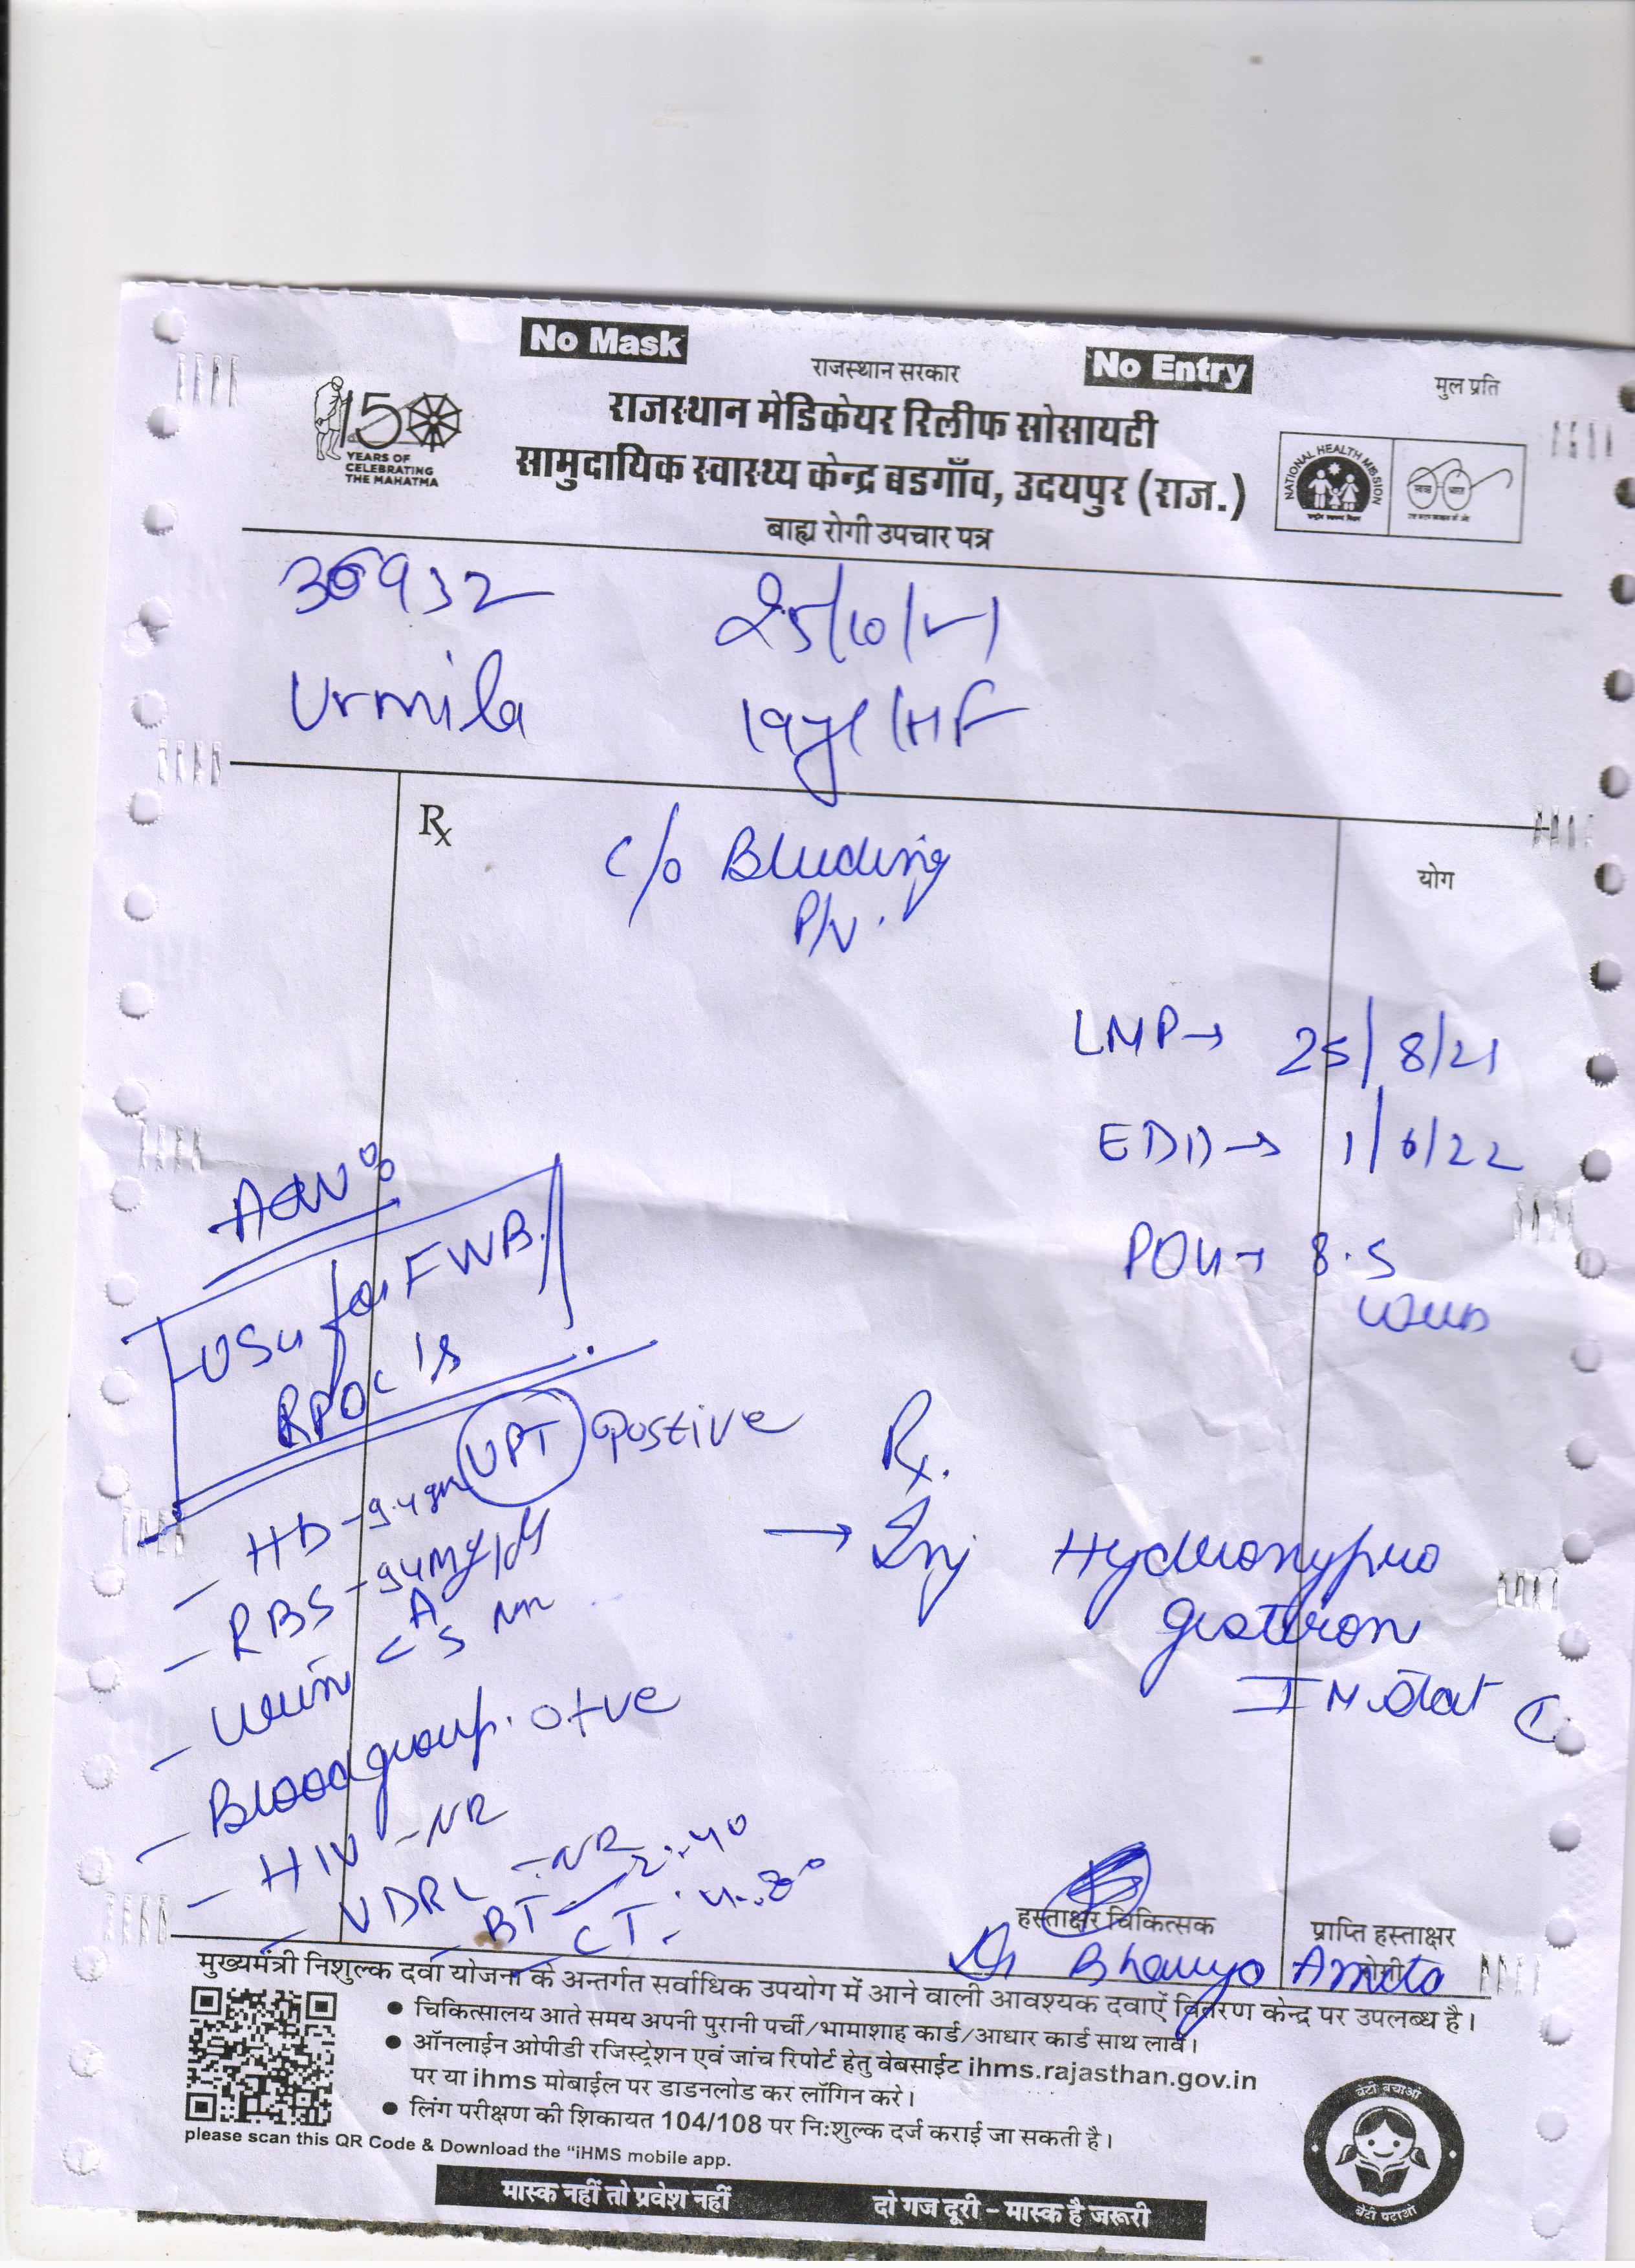 No Mask
No Entry
राजस्थान सरकार
मुल प्रति
राजस्थान मेडिकेयर रिलीफ सोसायटी
सामुदायिक स्वास्थ्य केन्द्र बडगाँव, उदयपुर (राज.)
बाह्य रोगी उपचार पत्र
150
YEARS OF
CELEBRATING
THE MAHATMA
NATIONAL HEALTH MISSION
36932
25/10/21
Urmila
19y/HF
Rx
योग
c/o Bleeding
P/V.
LMP→ 25/8/21
EDD→ 1/6/22
POG→ 8.5
weeks
Adv:
-USG for FWB.
RPOC's
UPT Postive
- HB -9.4gm
- RBS -94Mg/dl
- Urin
A
S
- Blood group. O+ve
- HIV -NR
- VDRL -NR
- BT - 2:40
- CT -
Rx.
→ Inj Hydroxypro
gesteron
IM stat
हस्ताक्षर चिकित्सक
प्राप्ति हस्ताक्षर
Dr Bhavya
Amita
मुख्यमंत्री निशुल्क दवा योजना के अन्तर्गत सर्वाधिक उपयोग में आने वाली आवश्यक दवाऐं वितरण केन्द्र पर उपलब्ध है।
● चिकित्सालय आते समय अपनी पुरानी पर्ची/भामाशाह कार्ड/आधार कार्ड साथ लावें।
● ऑनलाईन ओपीडी रजिस्ट्रेशन एवं जांच रिपोर्ट हेतु वेबसाईट ihms.rajasthan.gov.in
पर या ihms मोबाईल पर डाडनलोड कर लॉगिन करे।
● लिंग परीक्षण की शिकायत 104/108 पर नि:शुल्क दर्ज कराई जा सकती है।
please scan this QR Code & Download the "iHMS mobile app.
मास्क नहीं तो प्रवेश नहीं
दो गज दूरी - मास्क है जरूरी
बेटी बचाओ
बेटी पढाओ